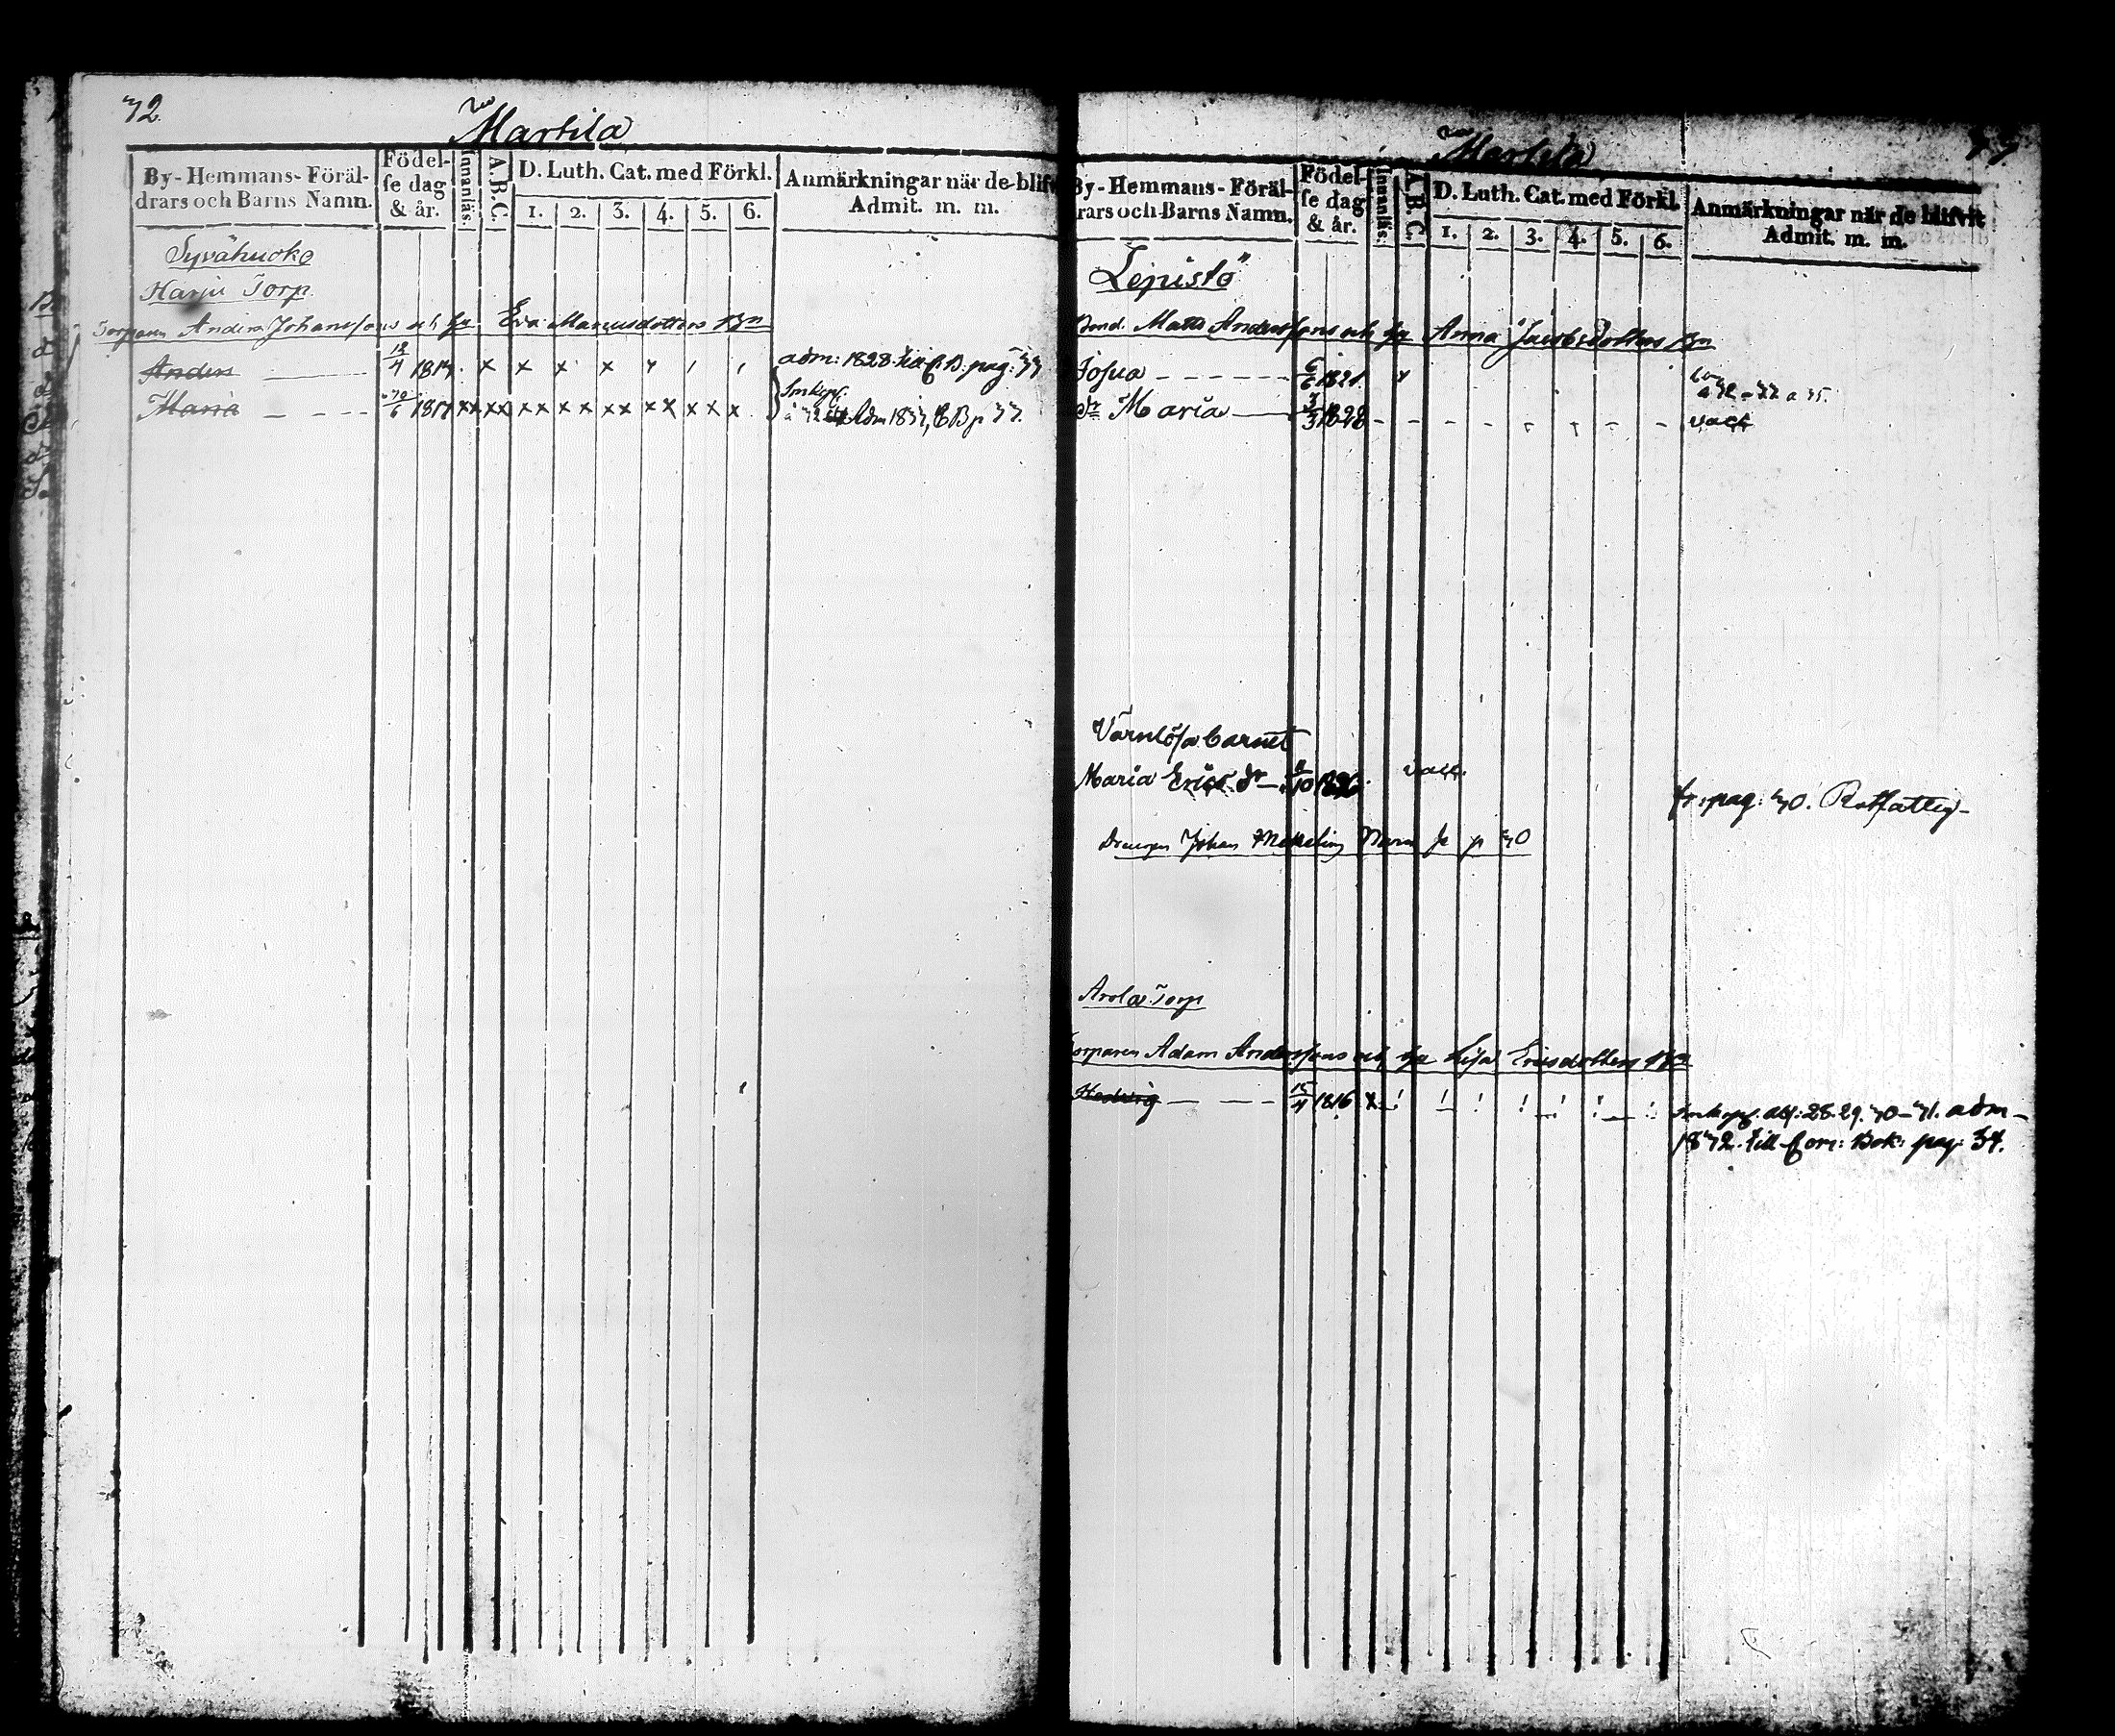 32.
Martila
By-Hemmans-Föräl-
drars och Barns Namn.
Födel-
se dag
& år.
Innanläs.
A.B.C.
D. Luth. Cat. med Förkl.
1. 2. 3. 4. 5. 6.
Anmärkningar när de blifv
Admit. m. m.
Syvähuoko
Harju Torp.
Torparen Anders Johanssons och hu Eva Marcusdotters Bn
Anders 1813. x x x x
adm: 1828. C.B. pag: 33
Maria 1817 xx xx xx xx xx xx xx x x
Adm 1837, CB p 33.
Martila
33.
By-Hemmans-Föräl-
rars och Barns Namn.
Födel-
se dag
& år.
Innanläs.
A.B.C.
D. Luth. Cat. med Förkl.
1. 2. 3. 4. 5. 6.
Anmärkningar när de blifvit
Admit. m. m.
Lepistö
Bond. Matts Anderssons och hu Anna Jacobsdotters Bn
Josua 6/6 1821.
dr Maria 3/3 1828 vacc
Värnlösa barnet
Maria Erics dr vacc.
fr. pag: 30. Rotfattig
Drengen Johan p 30
Arola Torp
Torparen Adam Anderssons och hu Lisa Ericsdotters Bn
Hedvig 15/4 1816 x
28. 29. 30-31. adm
1832. till Com: Bok: pag: 34.